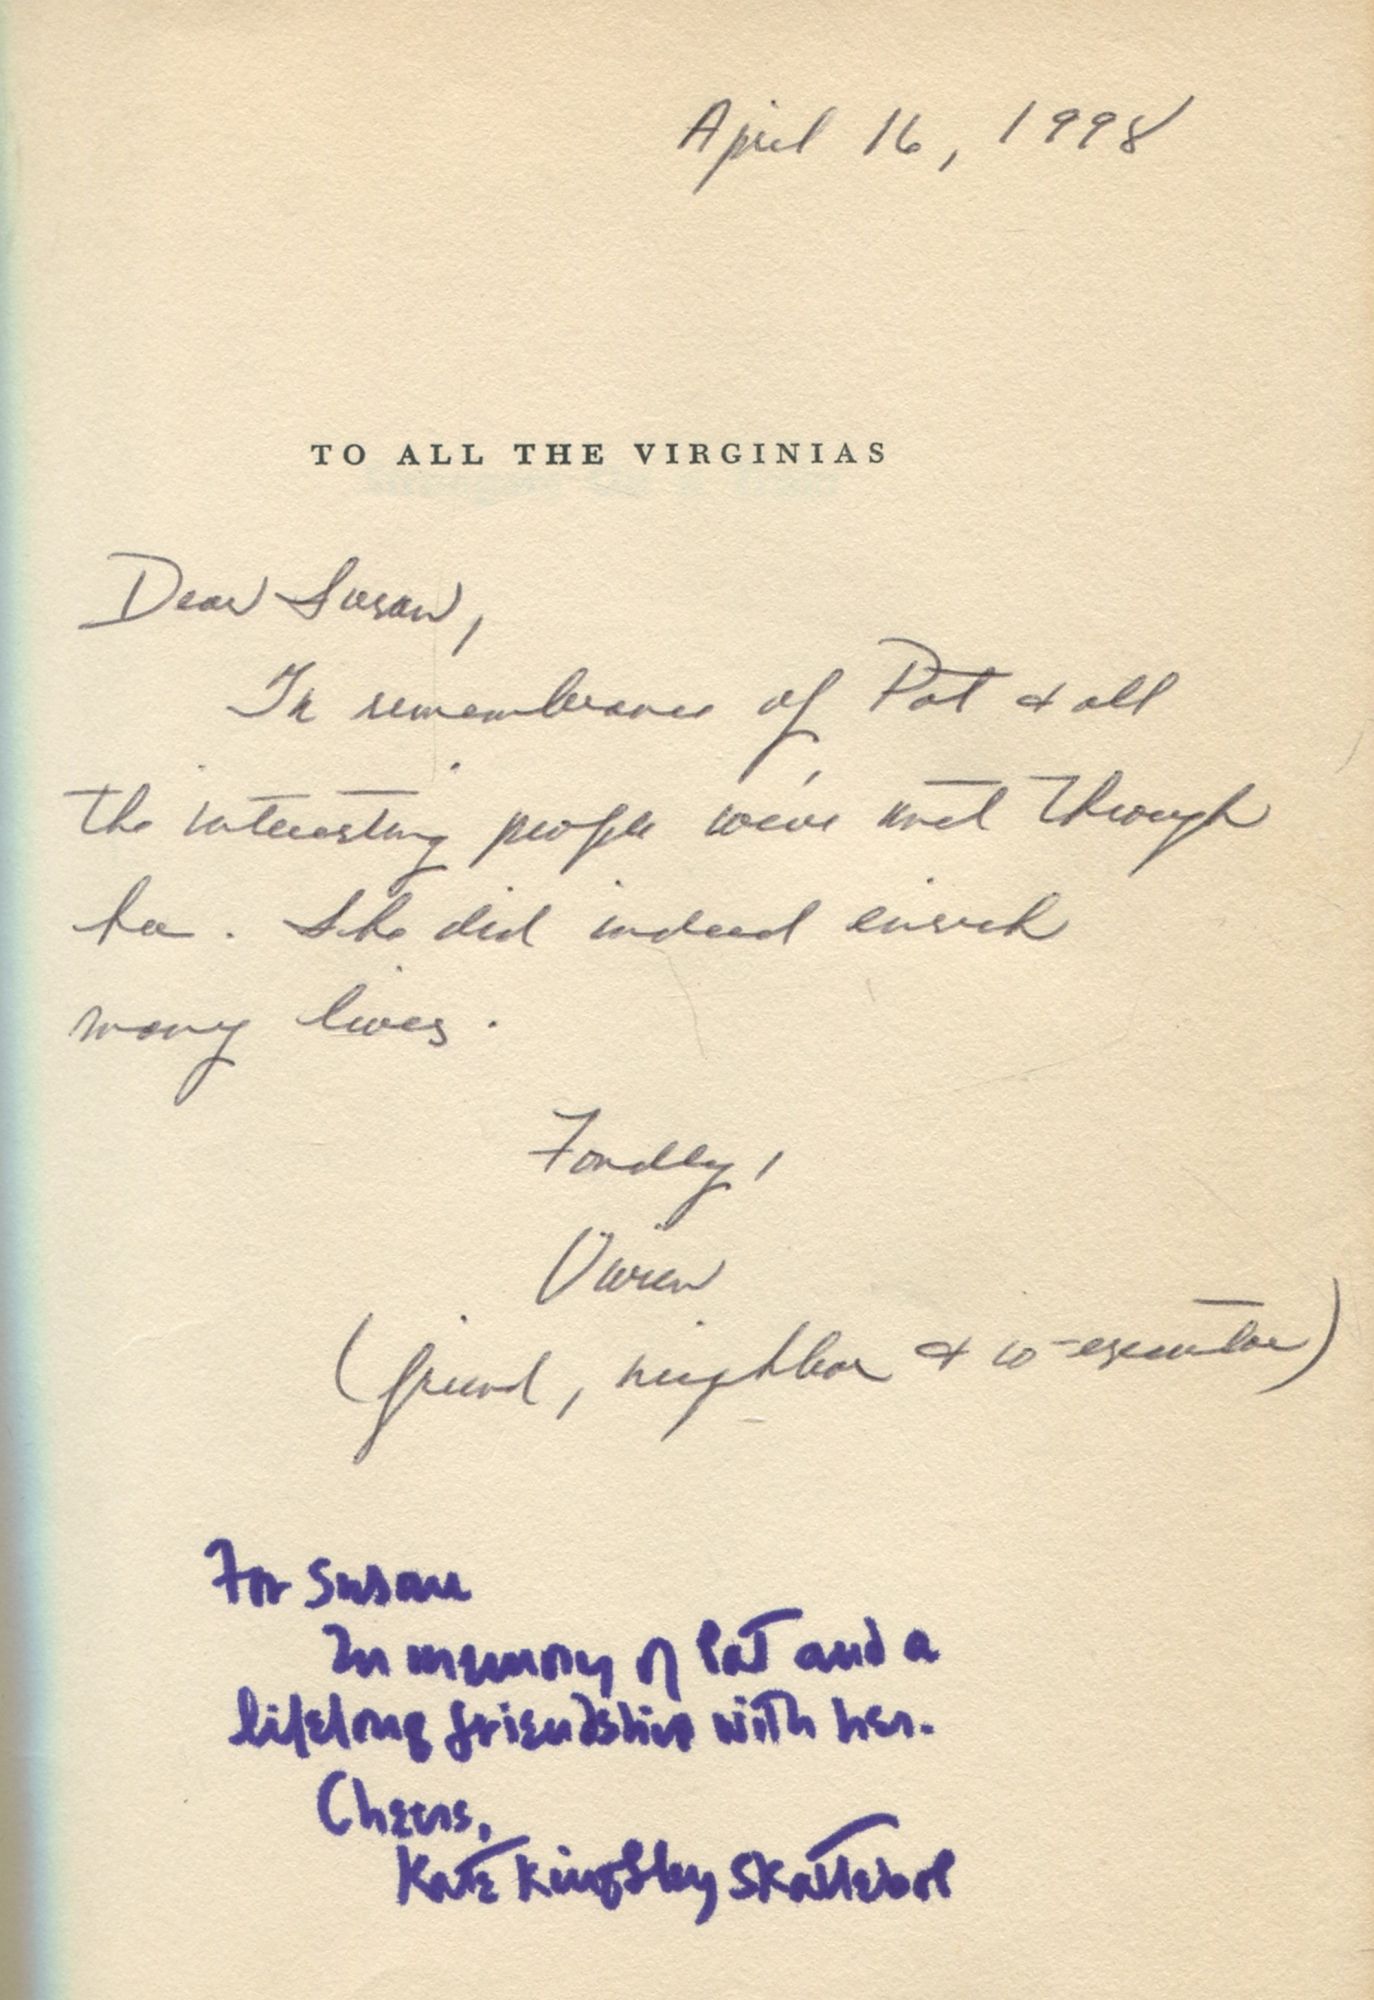 April 16, 1998
TO ALL THE VIRGINIAS
Dear Susan,
In remembrance of Pat & all
the interesting people we've met through
her. She did indeed enrich
many lives.
Fondly,
(friend, neighbor & co-executor)
For Susan
In memory of Pat and a
lifelong friendship with her.
Cheers,
Kate Kingsley Skattebol